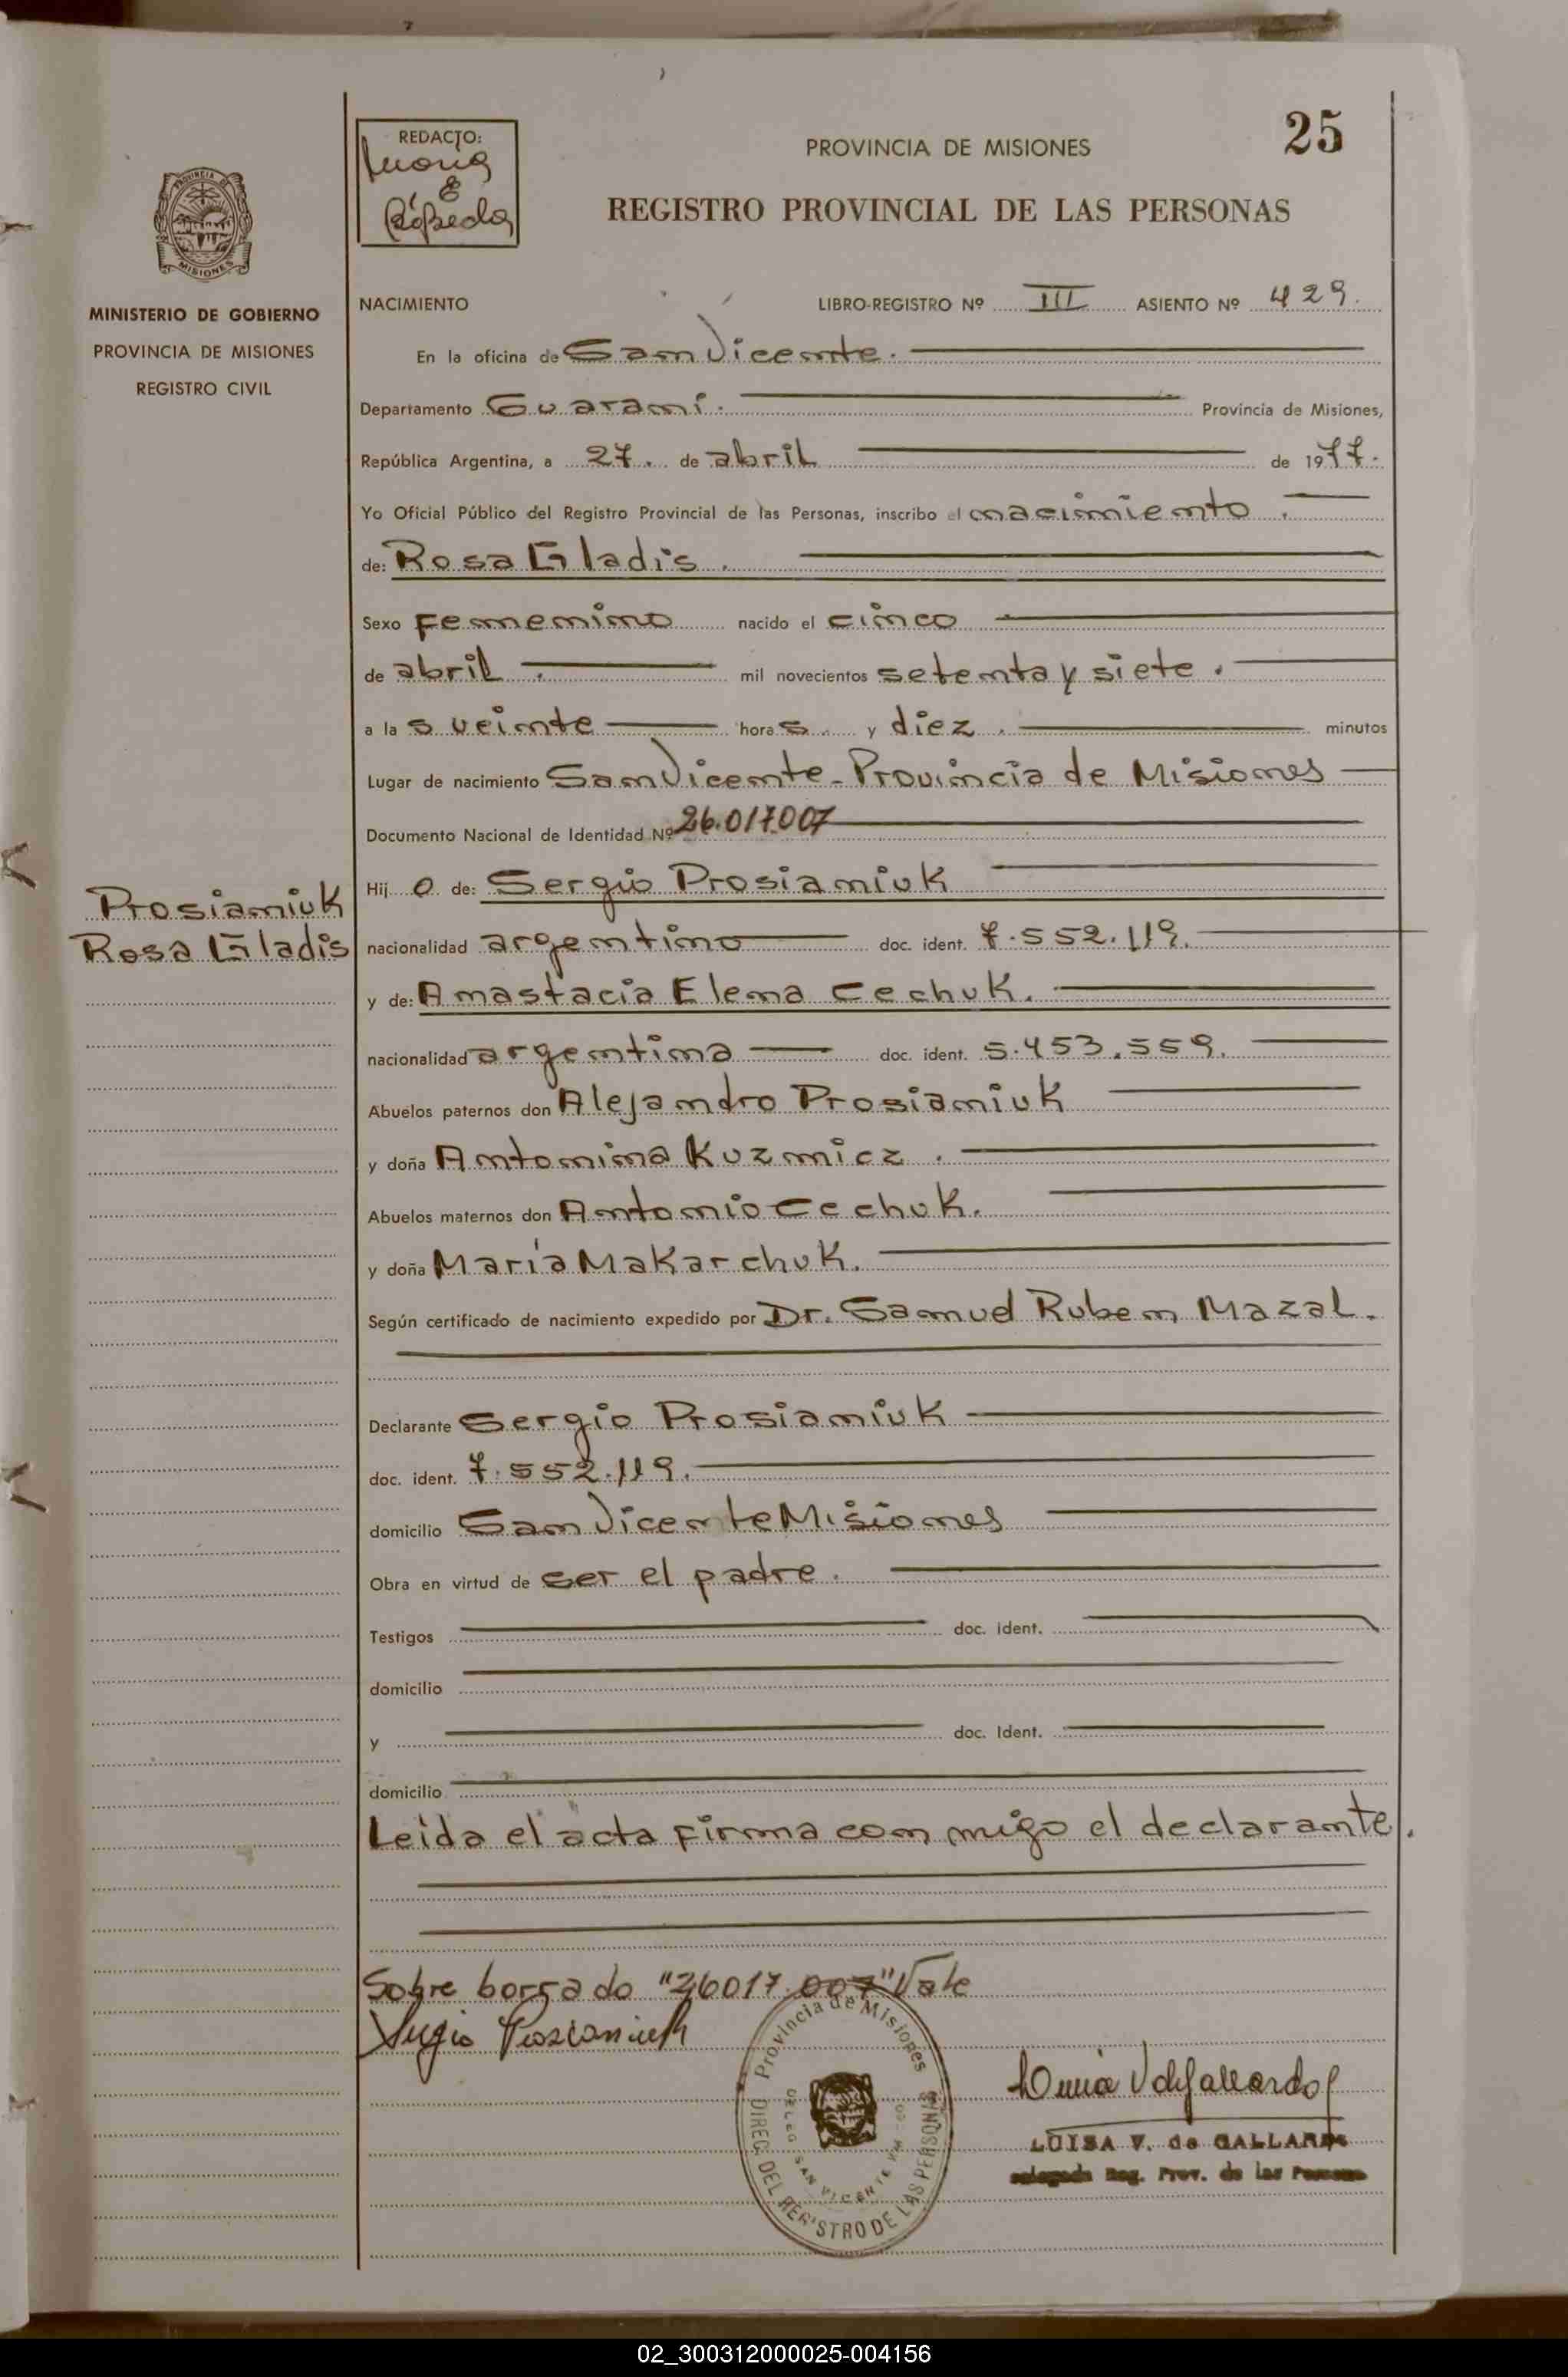 25
REDACTO:
PROVINCIA DE MISIONES
REGISTRO PROVINCIAL DE LAS PERSONAS
MINISTERIO DE GOBIERNO
PROVINCIA DE MISIONES
REGISTRO CIVIL
NACIMIENTO LIBRO-REGISTRO Nº III ASIENTO Nº 429.
En la oficina de San Vicente.
Departamento Guarani. Provincia de Misiones,
República Argentina, a 27. de abril de 1977.
Yo Oficial Público del Registro Provincial de las Personas, inscribo el nacimiento.
de: Rosa Gladis.
Sexo femenino nacido el cinco
de abril. mil novecientos setenta y siete.
a las veinte horas y diez. minutos
Lugar de nacimiento San Vicente - Provincia de Misiones
Documento Nacional de Identidad Nº 26.017.007
Hijo de: Sergio Prosianiuk
Prosianiuk
Rosa Gladis
nacionalidad argentino doc. ident. 7.552.119.
y de: Anastacia Elena Cechuk.
nacionalidad argentina doc. ident. 5.453.559.
Abuelos paternos don Alejandro Prosianiuk
y doña Antonina Kuzmicz.
Abuelos maternos don Antonio Cechuk.
y doña María Makarchuk.
Según certificado de nacimiento expedido por Dr. Samuel Ruben Mazal.
Declarante Sergio Prosianiuk
doc. ident. 7.552.119.
domicilio San Vicente Misiones
Obra en virtud de ser el padre.
Testigos doc. ident.
domicilio
y doc. Ident.
domicilio
Leida el acta firma con migo el declarante.
Sobre borrado "26017.007" Vale
Provincia de Misiones
DIREC. DEL REGISTRO DE LAS PERSONAS
DELEG SAN VICENTE
LUISA V. de GALLARDO
Delegada Reg. Prov. de las Personas
02_300312000025-004156